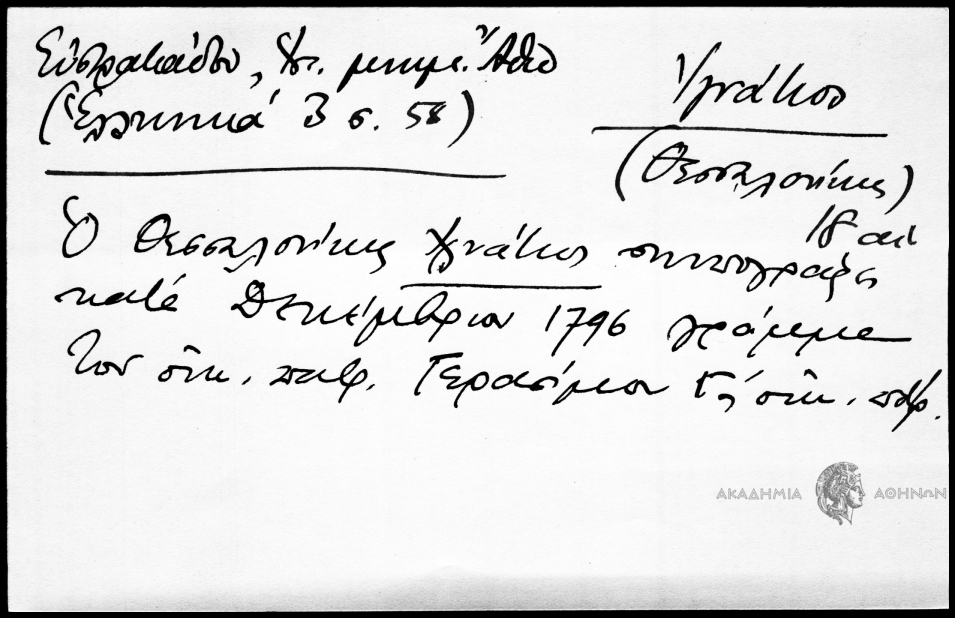 Εὐστρατιάδου, Ἱστ. μνημ. Ἄθω
(Ἑλληνικά 3 σ. 58)
Ἰγνάτιος
(Θεσσαλονίκης)
18 αἰ
Ὁ Θεσσαλονίκης Ἰγνάτιος συνυπογράφει
κατά Δεκέμβριον 1796 γράμμα
τοῦ οἰκ. πατρ. Γερασίμου Γ΄ οἰκ. πατρ.
ΑΚΑΔΗΜΙΑ ΑΘΗΝΩΝ